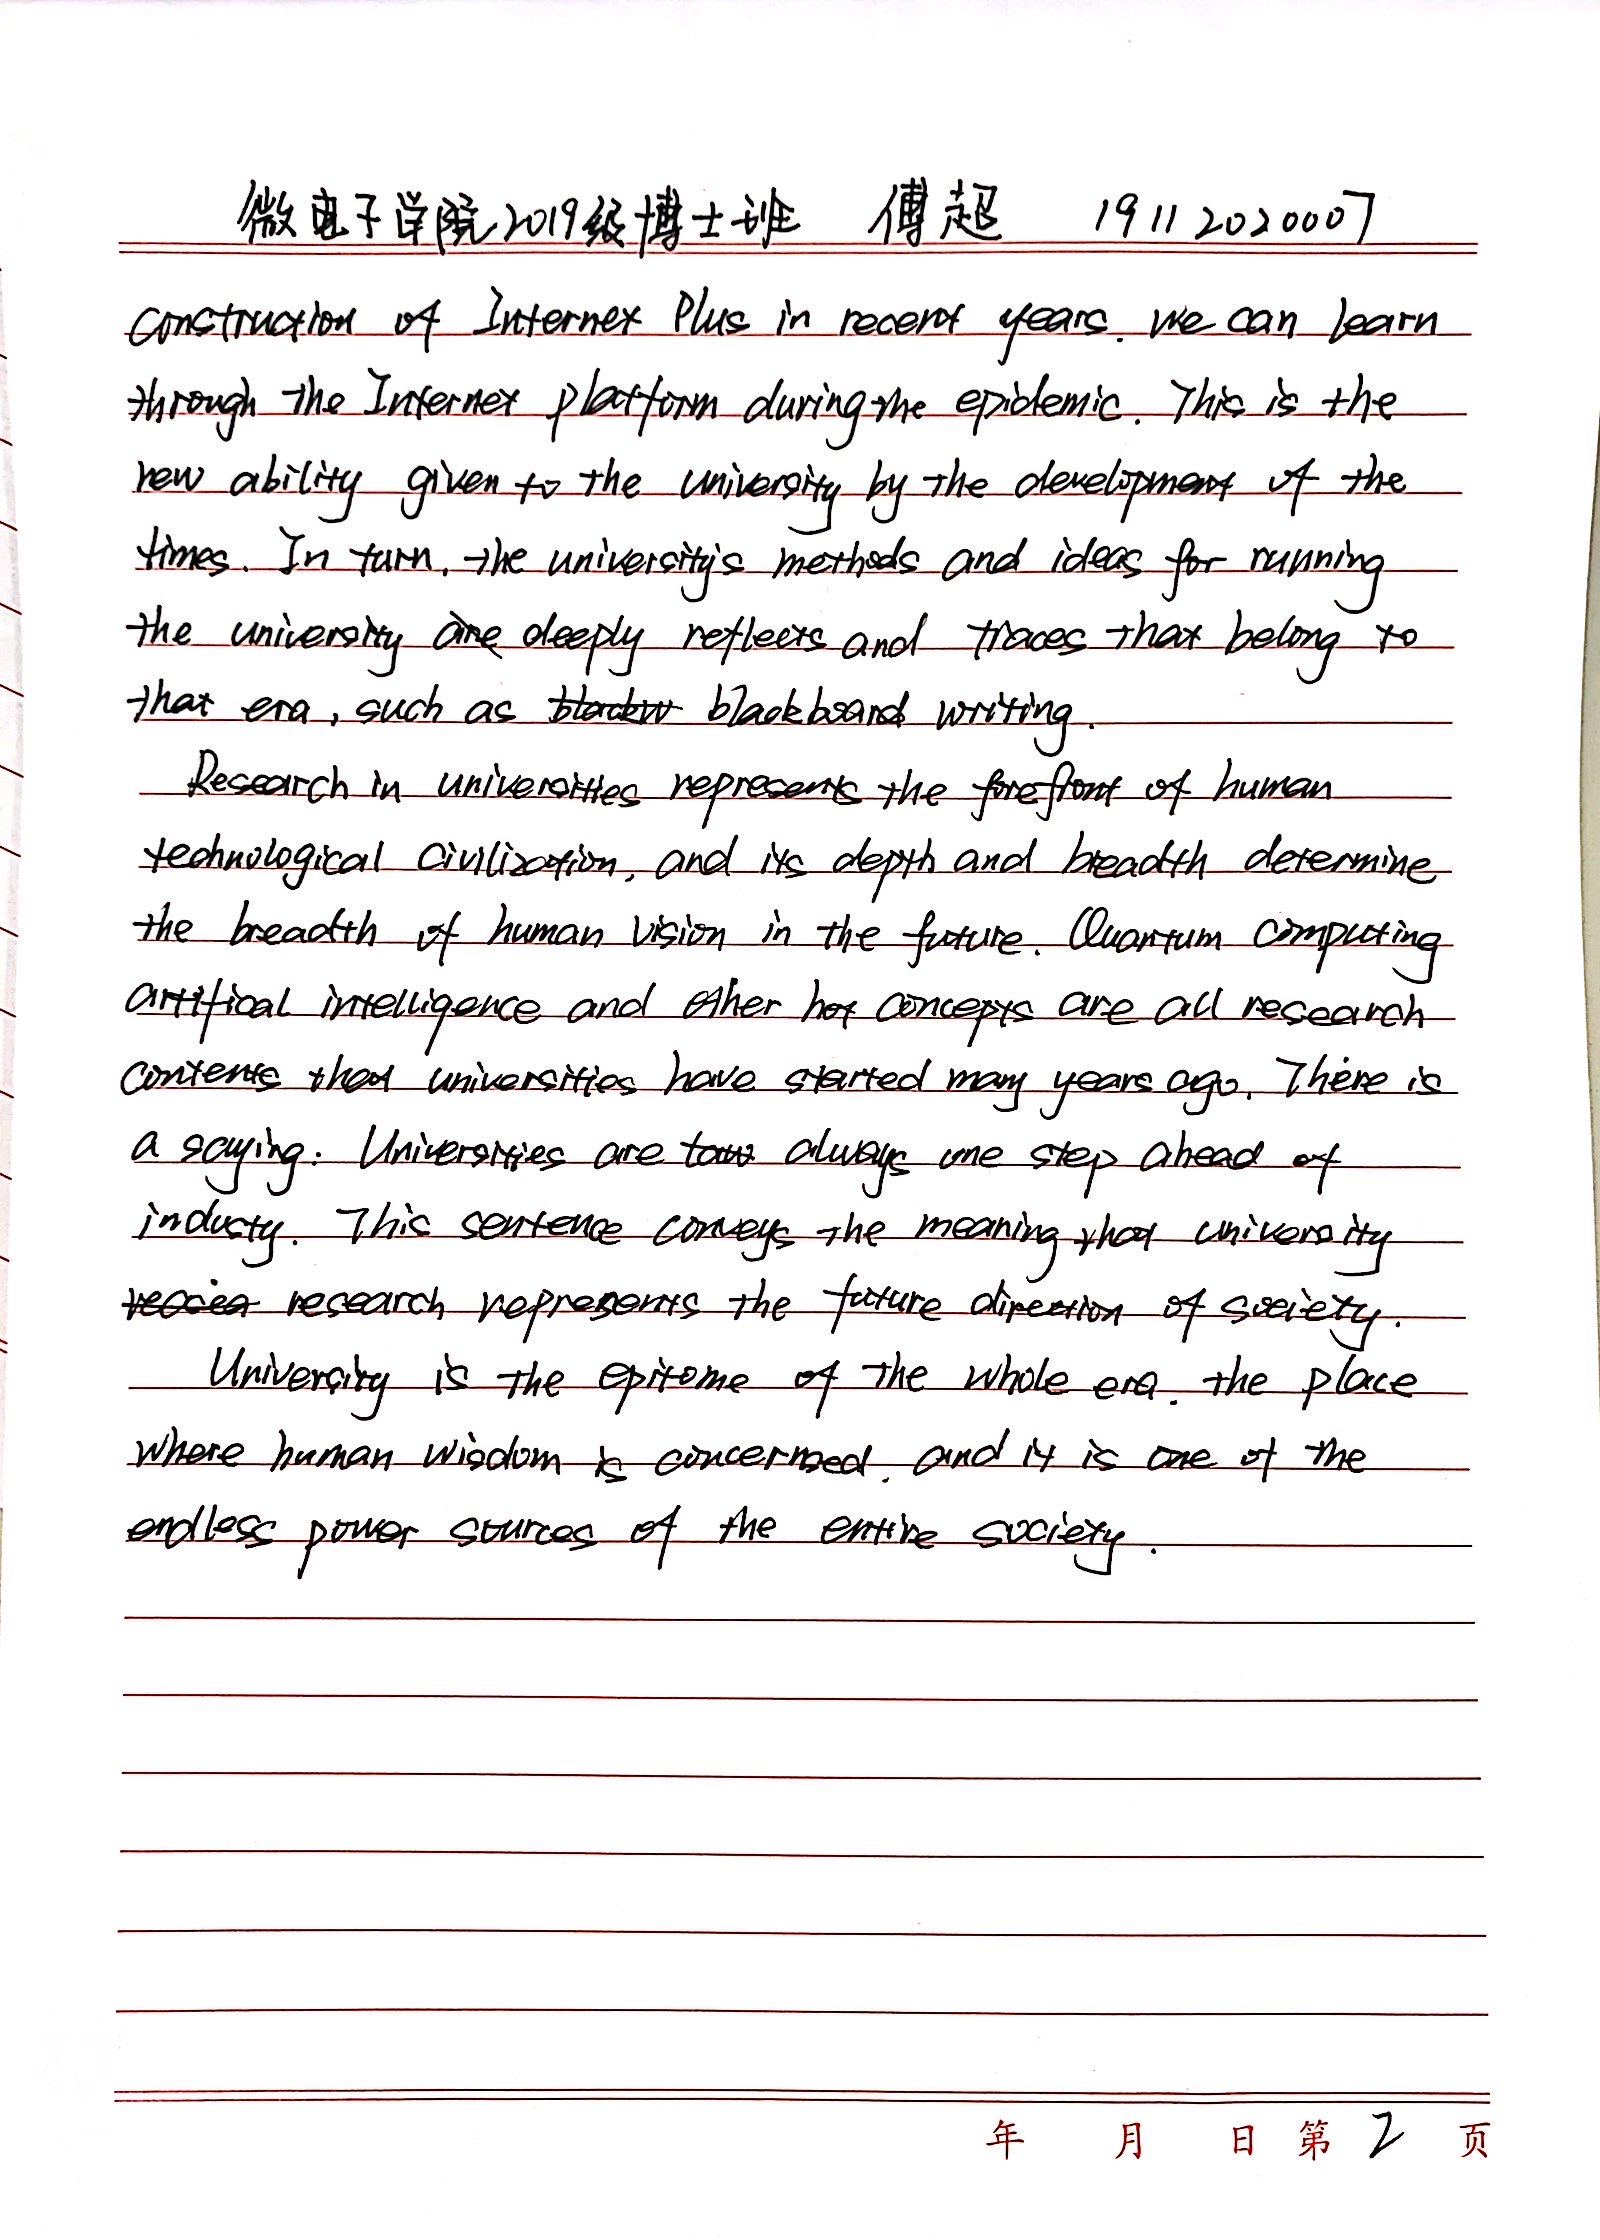 微电子学院2019级博士班 傅超 19112020007
construction of Internet Plus in recent years. we can learn
through the Internet platform during the epidemic. This is the
new ability given to the university by the development of the
times. In turn, the university's methods and ideas for running
the university are deeply reflects and traces that belong to
that era, such as blackboard writing.
Research in universities represents the forefront of human
technological civilization, and its depth and breadth determine
the breadth of human vision in the future. Quantum computing
artifical intelligence and other hot concepts are all research
contents that universities have started many years ago. There is
a saying: Universities are always one step ahead of
industy. This sentence conveys the meaning that university
research represents the future direction of society.
University is the epitome of the whole era. the place
where human wisdom is concerned. and it is one of the
endless power sources of the entire society.
年 月 日 第 2 页